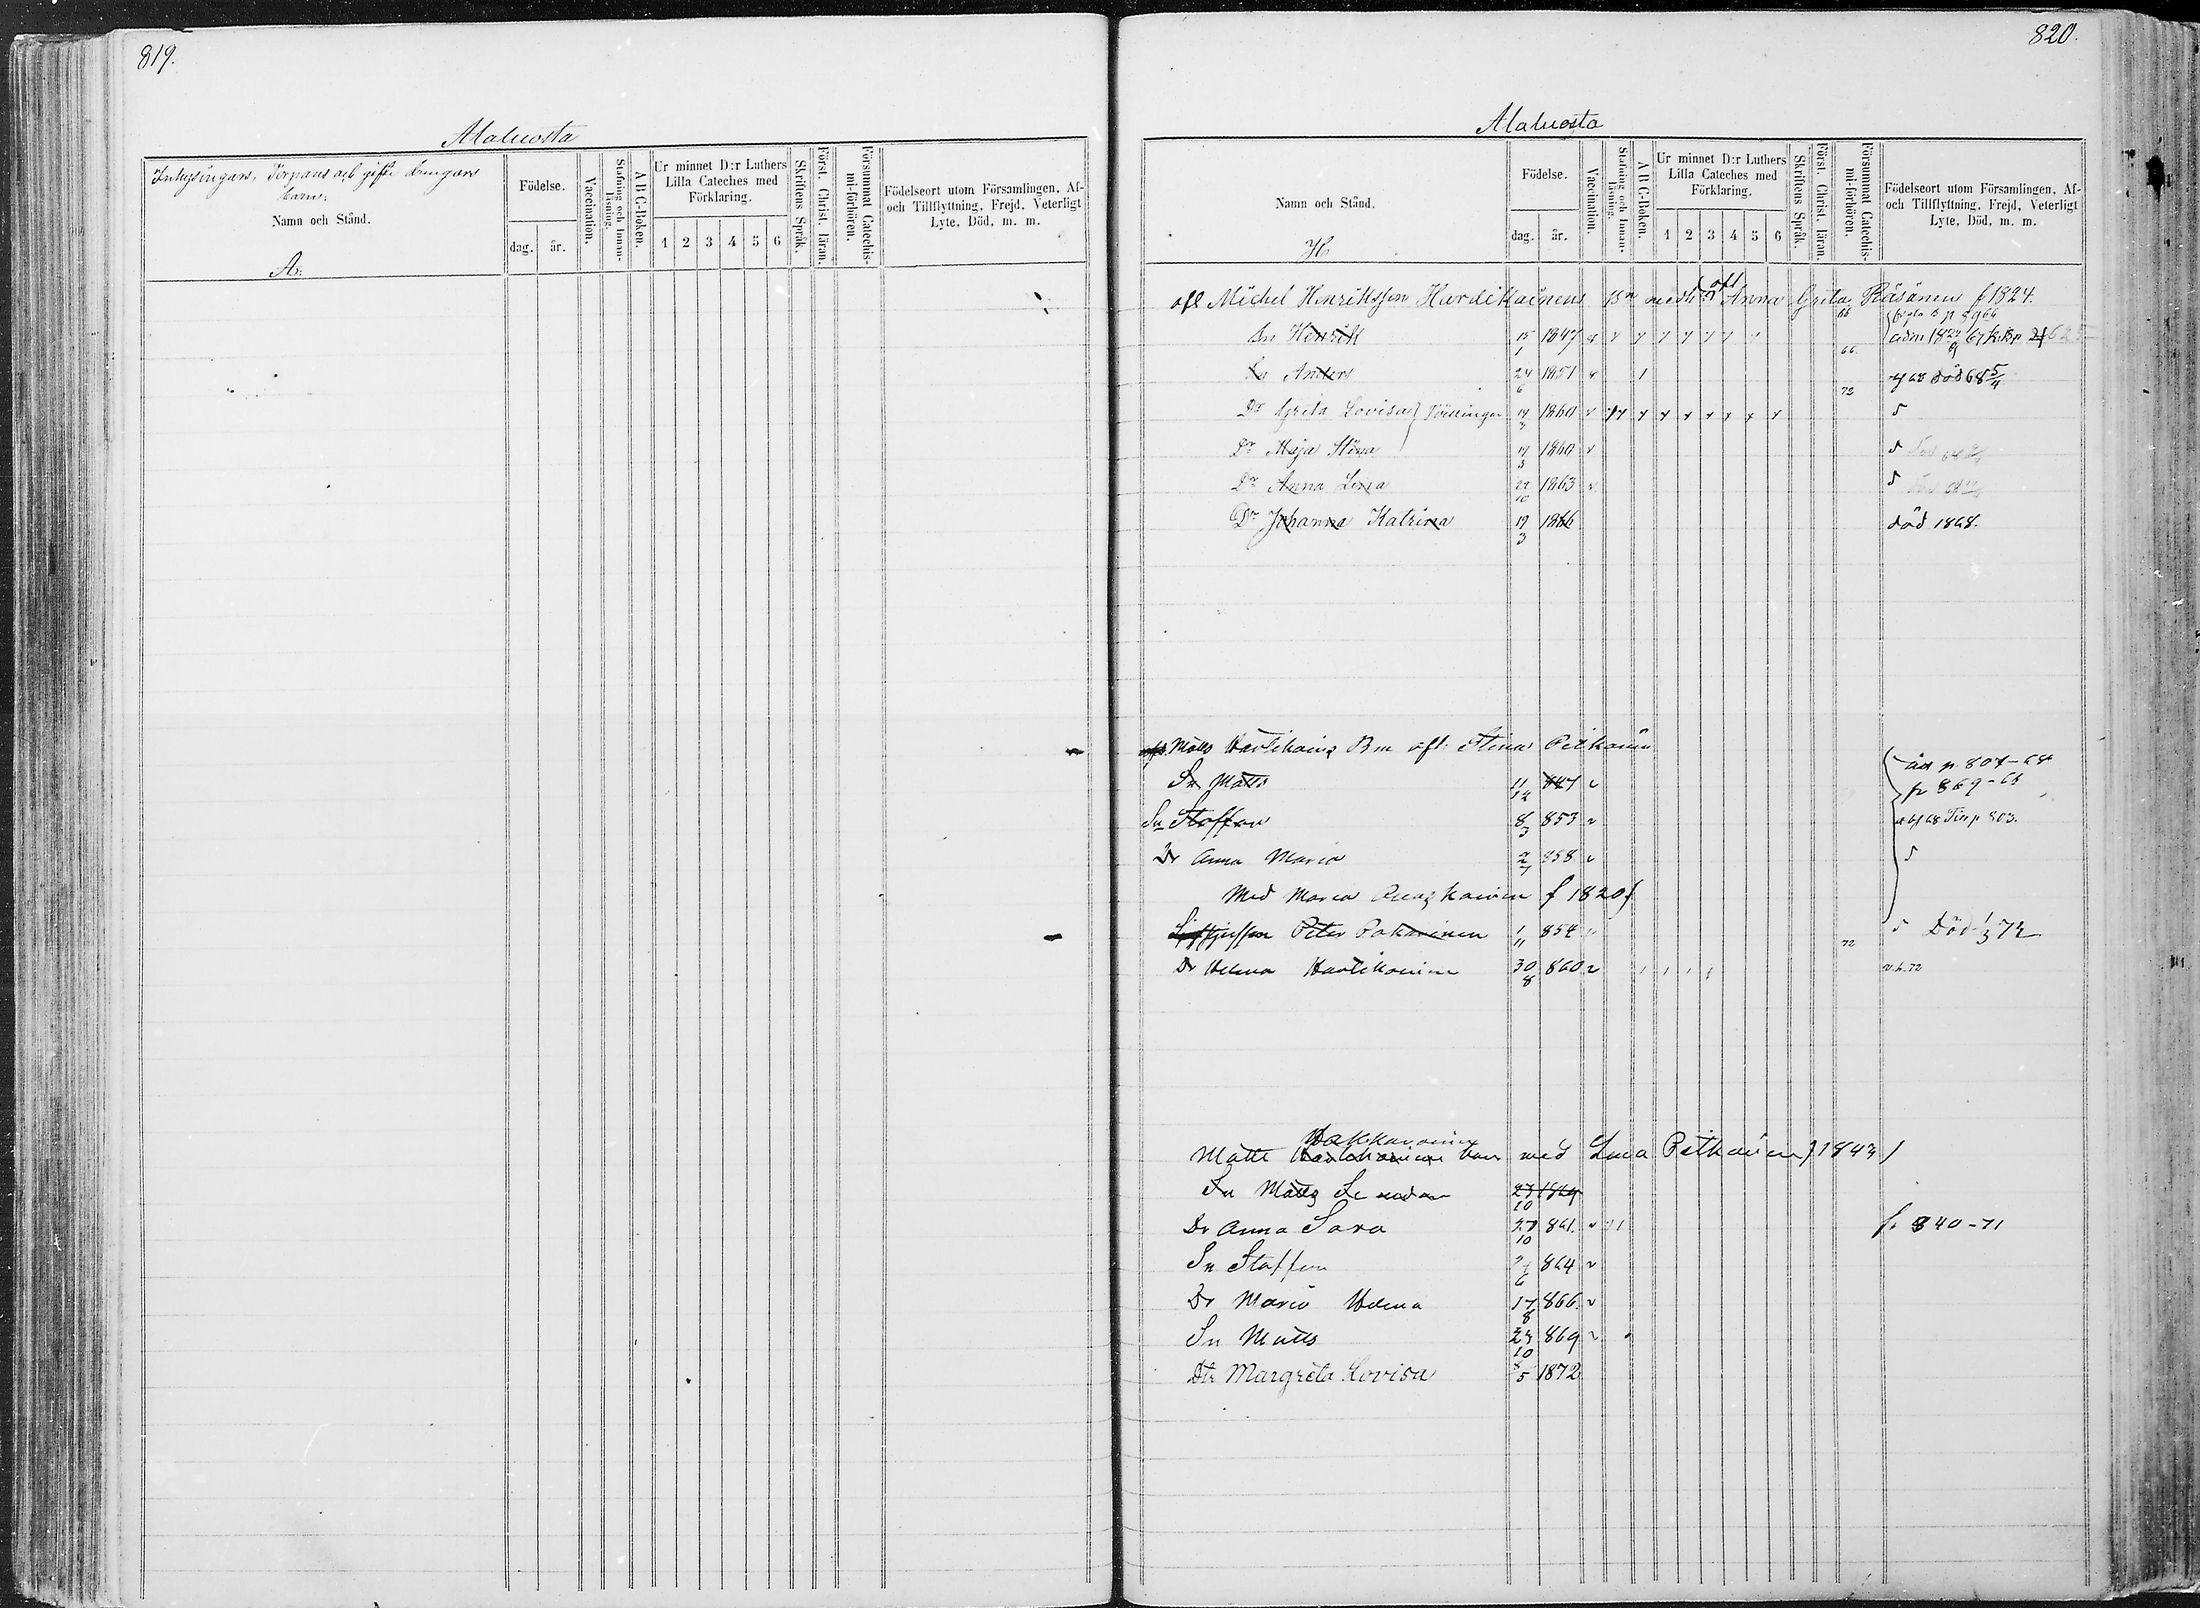 819.
Alaluosta
Inhysingars, Torpares och gifte drengars
barn.
Namn och Stånd.
Födelse.
dag. år.
Vaccination.
Stafning och Innanläsning.
A B C-Boken.
Ur minnet D:r Luthers
Lilla Cateches med
Förklaring.
1 2 3 4 5 6
Skriftens Språk.
Först. Christ. läran.
Försummat Catechismi-förhören.
Födelseort utom Församlingen, Af-
och Tillflyttning, Frejd, Veterligt
Lyte, Död, m. m.
A.
820.
Alaluosta
Namn och Stånd.
Födelse.
dag. år.
Vaccination.
Stafning och Innanläsning.
A B C-Boken.
Ur minnet D:r Luthers
Lilla Cateches med
Förklaring.
1 2 3 4 5 6
Skriftens Språk.
Först. Christ. läran.
Försummat Catechismi-förhören.
Födelseort utom Församlingen, Af-
och Tillflyttning, Frejd, Veterligt
Lyte, Död, m. m.
H.
afl Michel Henriksson Hardikainens Bn med afl Anna Greta Räsänen f 1824.
Sn Henrik 15/1 1847
Sn Anders 24/6 1851 död 68 5/4
Dr Greta Lovisa Tvillingar 19/3 1860
Dr Maja Stina 19/3 1860
Dr Anna Lena 22/10 1863
Dr Johanna Katrina 19/3 1866 död 1868.
Matts Hartikains Bn afl: Stina Pitkänin
Sn Matts 11/12 847 fr 869-68
Sn Staffan 8/3 853
Dr Anna Maria 2/7 858
Med Maria f 1820
Peter Pakarinen 1/11 854 72 Död 1/3 72
Dr Helena Hartikainen 30/8 860
Hakkarainen
Matts Hartikainen barn med Lena Pitkänen f 1843
Sn Matts Se nedan 23/10 1869
Dr Anna Sara 27/10 861. fr 840-71
Sn Staffan 6 864
Dr Maria Helena 17/8 866
Sn Matts 23/10 869
Dtr Margreta Lovisa 8/5 1872